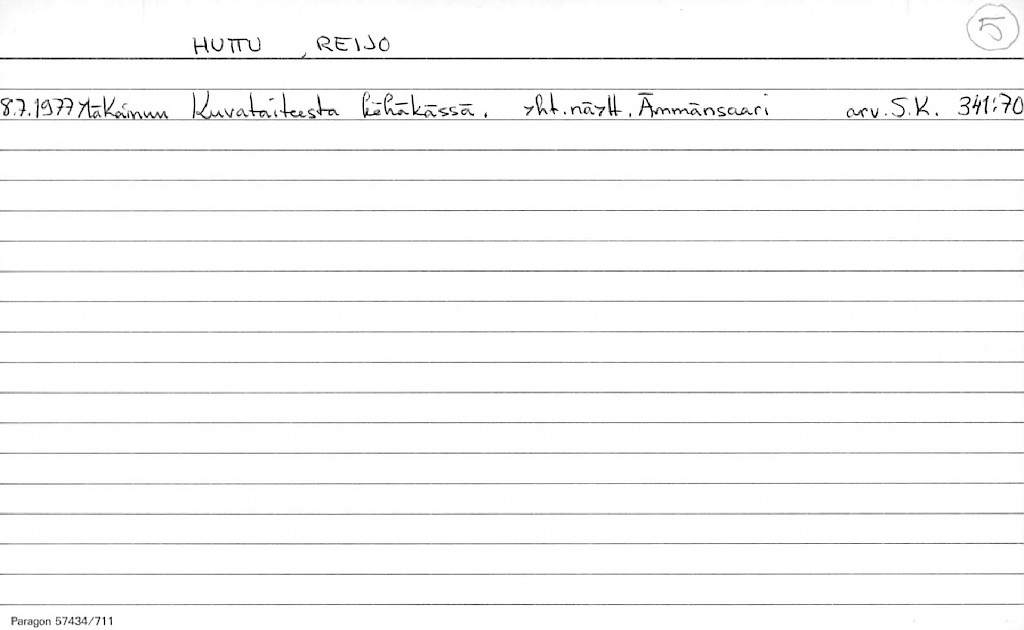 5
HUTTU , REIJO
8.7.1977 YläKainuu Kuvataiteesta kēhākāssā. yht.näytt. Āmmānsaari arv. S.K. 341:70
Paragon 57434/711